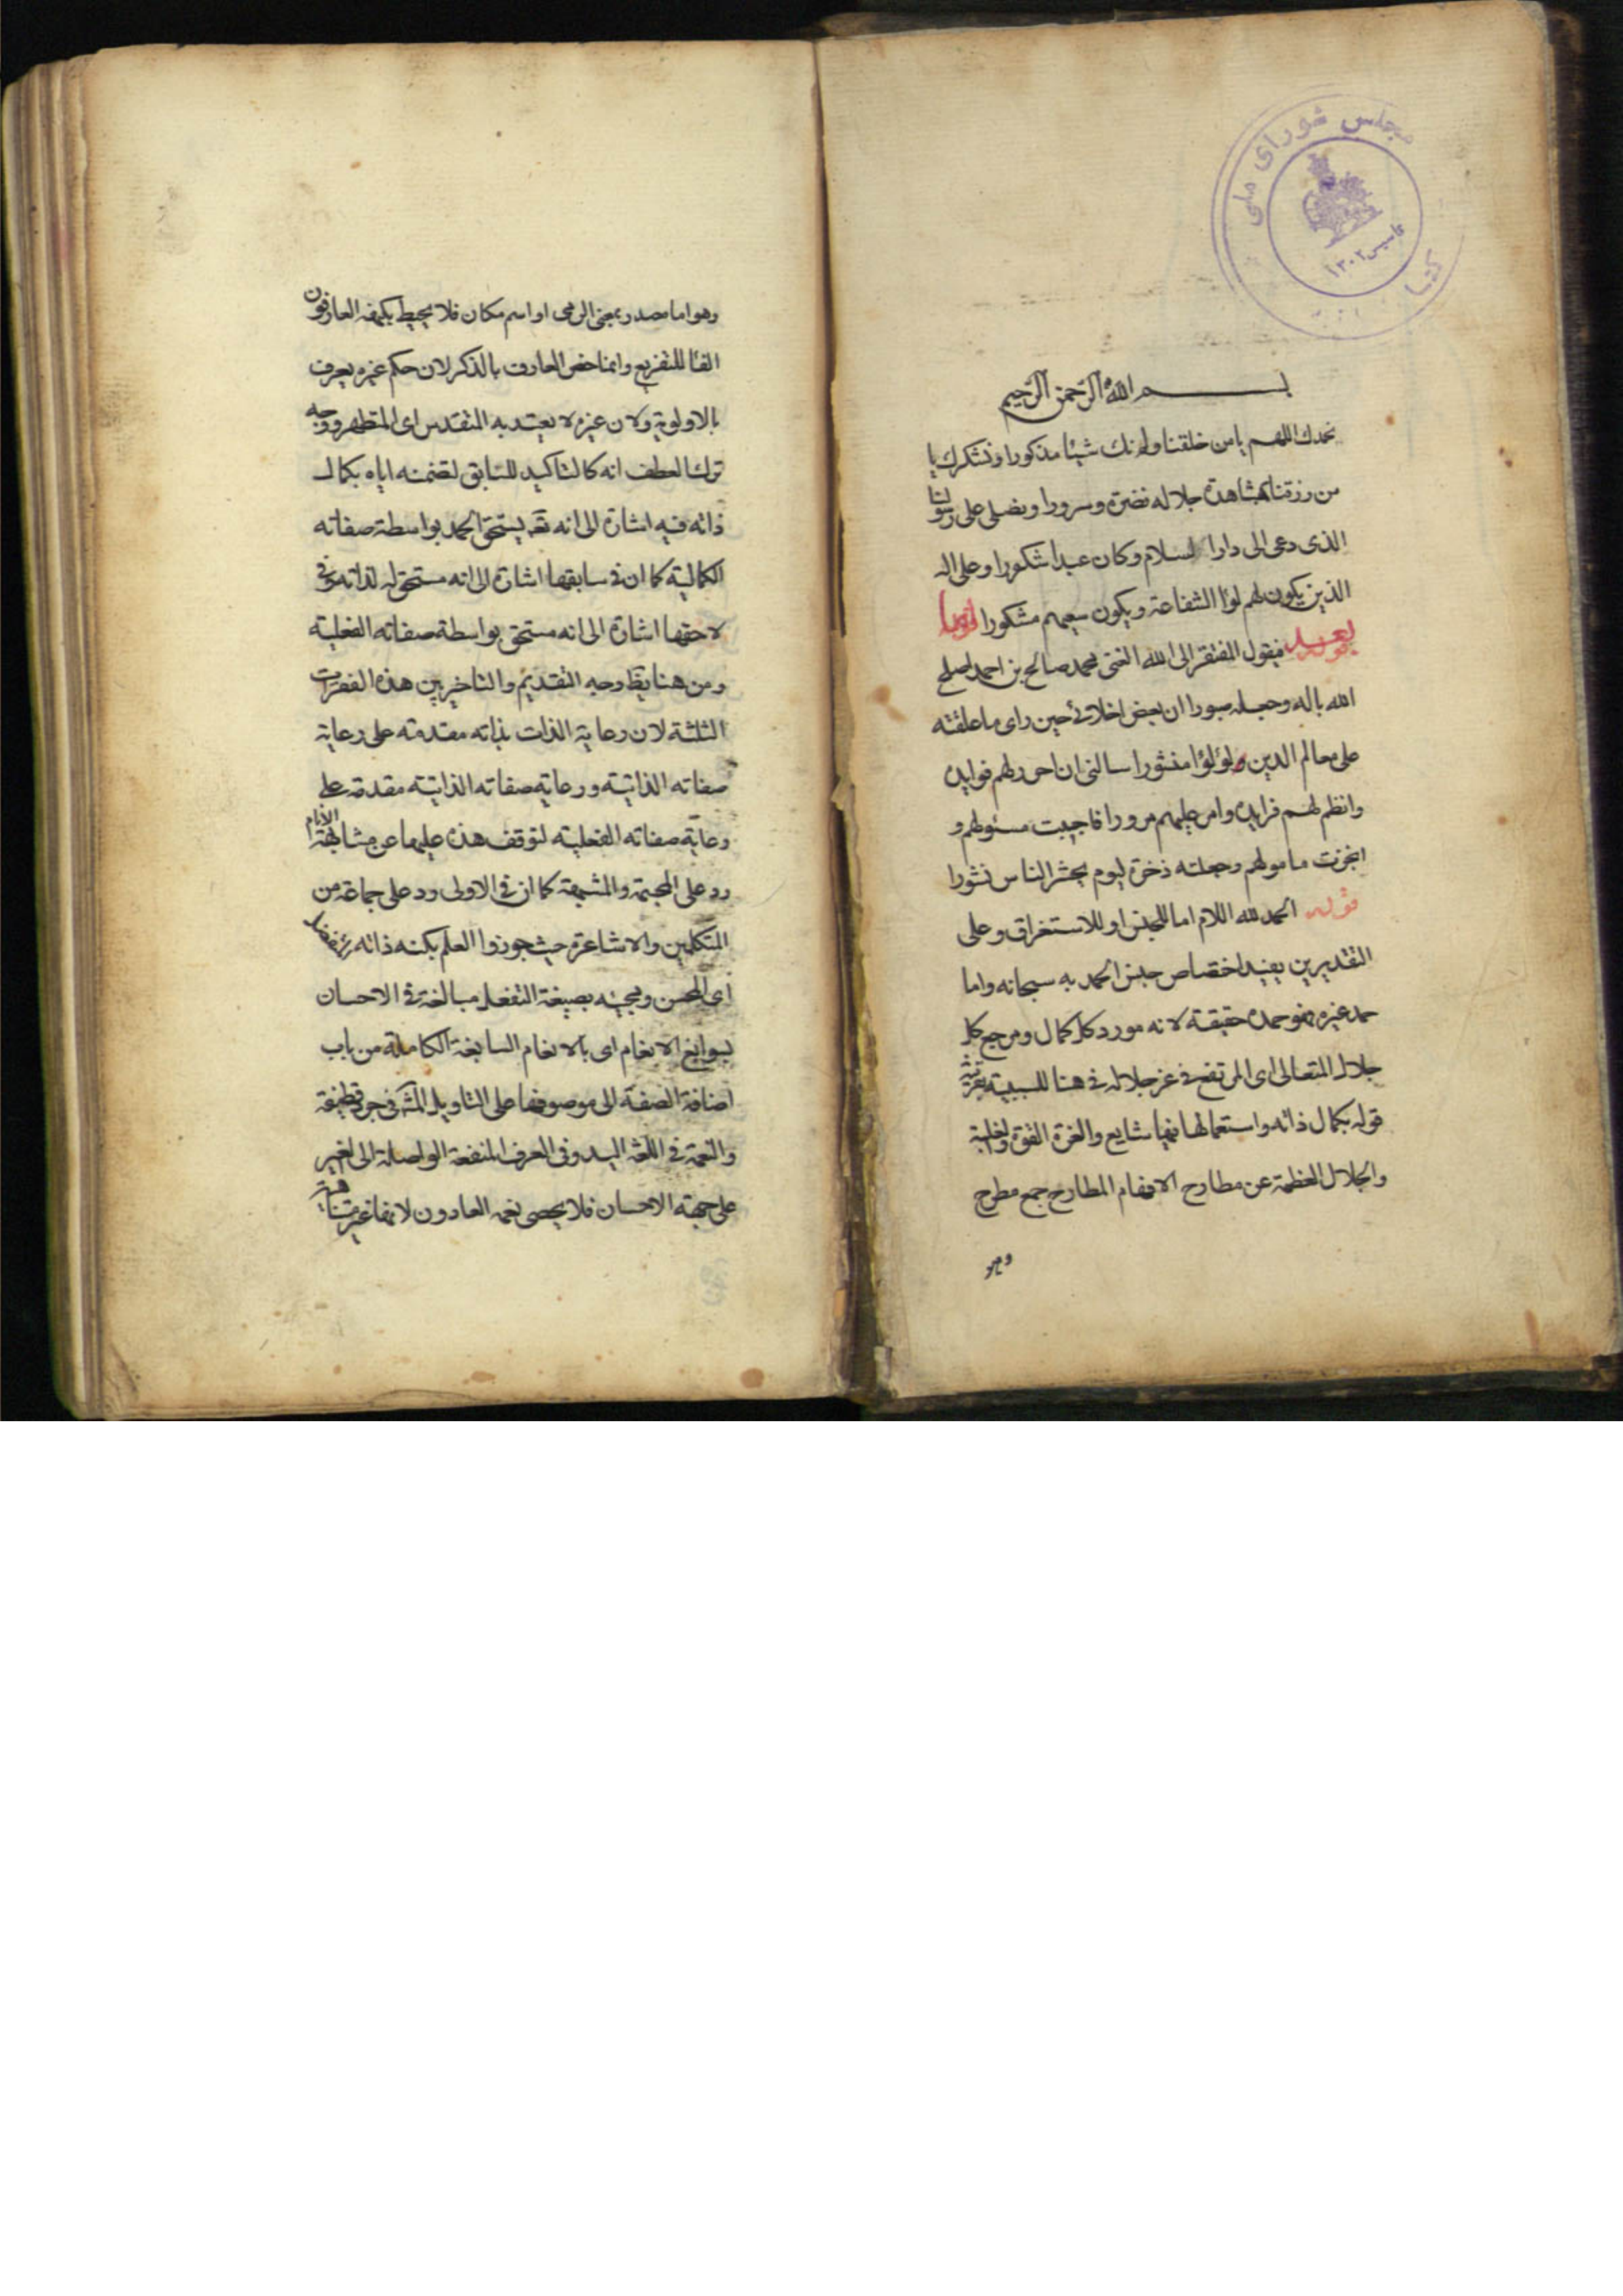 مجلس شورای ملی
تاسیس ۱۳۰۲
بسم الله الرحمن الرحيم
نحمدك اللهم يا من خلقنا ولم نك شيئا مذكورا ونشكرك يا
من رزقنا بمشاهدة جلاله نضرة وسرورا ونصلى على رسولنا
الذى دعى الى دار السلام وكان عبدا شكورا وعلى اله
الذين يكون لهم لوا الشفاعة ويكون سعيهم مشكورا
بعد فيقول المفتقر الى الله الغنى محمد صالح بن احمد اصلح
الله باله وجعله صبورا ان بعض اخلائى حين راى ما علقته
على معالم الدين لؤلؤا منثورا سالنى ان احرر لهم فوايده
وانظم لهم فرايده وامر عليهم مرورا فاجبت مسئولهم و
انجزت مامولهم وجعلته ذخرة ليوم يحشر الناس نشورا
قوله الحمد لله اللام اما للجنس او للاستغراق وعلى
التقديرين يفيد اختصاص جنس الحمد به سبحانه واما
حمد غيره فهو حمده حقيقة لانه مورد كل كمال ومرجع كل
جلال المتعالى اى المرتفع فى عز جلاله فى هنا للسببية بقرينة
قوله بكمال ذاته واستعمالها فيها شايع والعزة القوة والغلبة
والجلال العظمة عن مطارح الافهام المطارح جمع مطرح
وهو
وهو اما مصدر بمعنى الرمى او اسم مكان فلا يحيط بكنهه العارفون
الفا للتفريع وانما خص العارف بالذكر لان حكم غيره يعرف
بالاولوية ولان غيره لا يعتد به المتقدس اى المتطهر ووجه
ترك العطف انه كالتاكيد للسابق لتضمنه اياه بكمال
ذاته فيه اشارة الى انه تعه يستحق الحمد بواسطة صفاته
الكمالية كما ان فى سابقها اشارة الى انه مستحق له لذاته وفى
لاحقها اشارة الى انه مستحق بواسطة صفاته الفعلية
ومن هنا يظ وجه التقديم والتاخير بين هذه الفقرات
الثلثة لان رعاية الذات بذاته مقدمة على رعاية
صفاته الذاتية ورعاية صفاته الذاتية مقدمة على
رعاية صفاته الفعلية لتوقف هذه عليهما عن مشابهة الانام
رد على المجسمة والمشبهة كما ان فى الاولى رد على جماعة من
المتكلمين والاشاعرة حيث جوزوا العلم بكنه ذاته المتفضل
اى المحسن ومجيئه بصيغة التفعل مبالغة فى الاحسان
بسوابغ الانعام اى بالانعام السابغة الكاملة من باب
اضافة الصفة الى موصوفها على التاويل المشه فى جرد قطيفة
والنعمة فى اللغة اليد وفى العرف المنفعة الواصلة الى الغير
على جهة الاحسان فلا يحصى نعمه العادون لانها غير متناهية